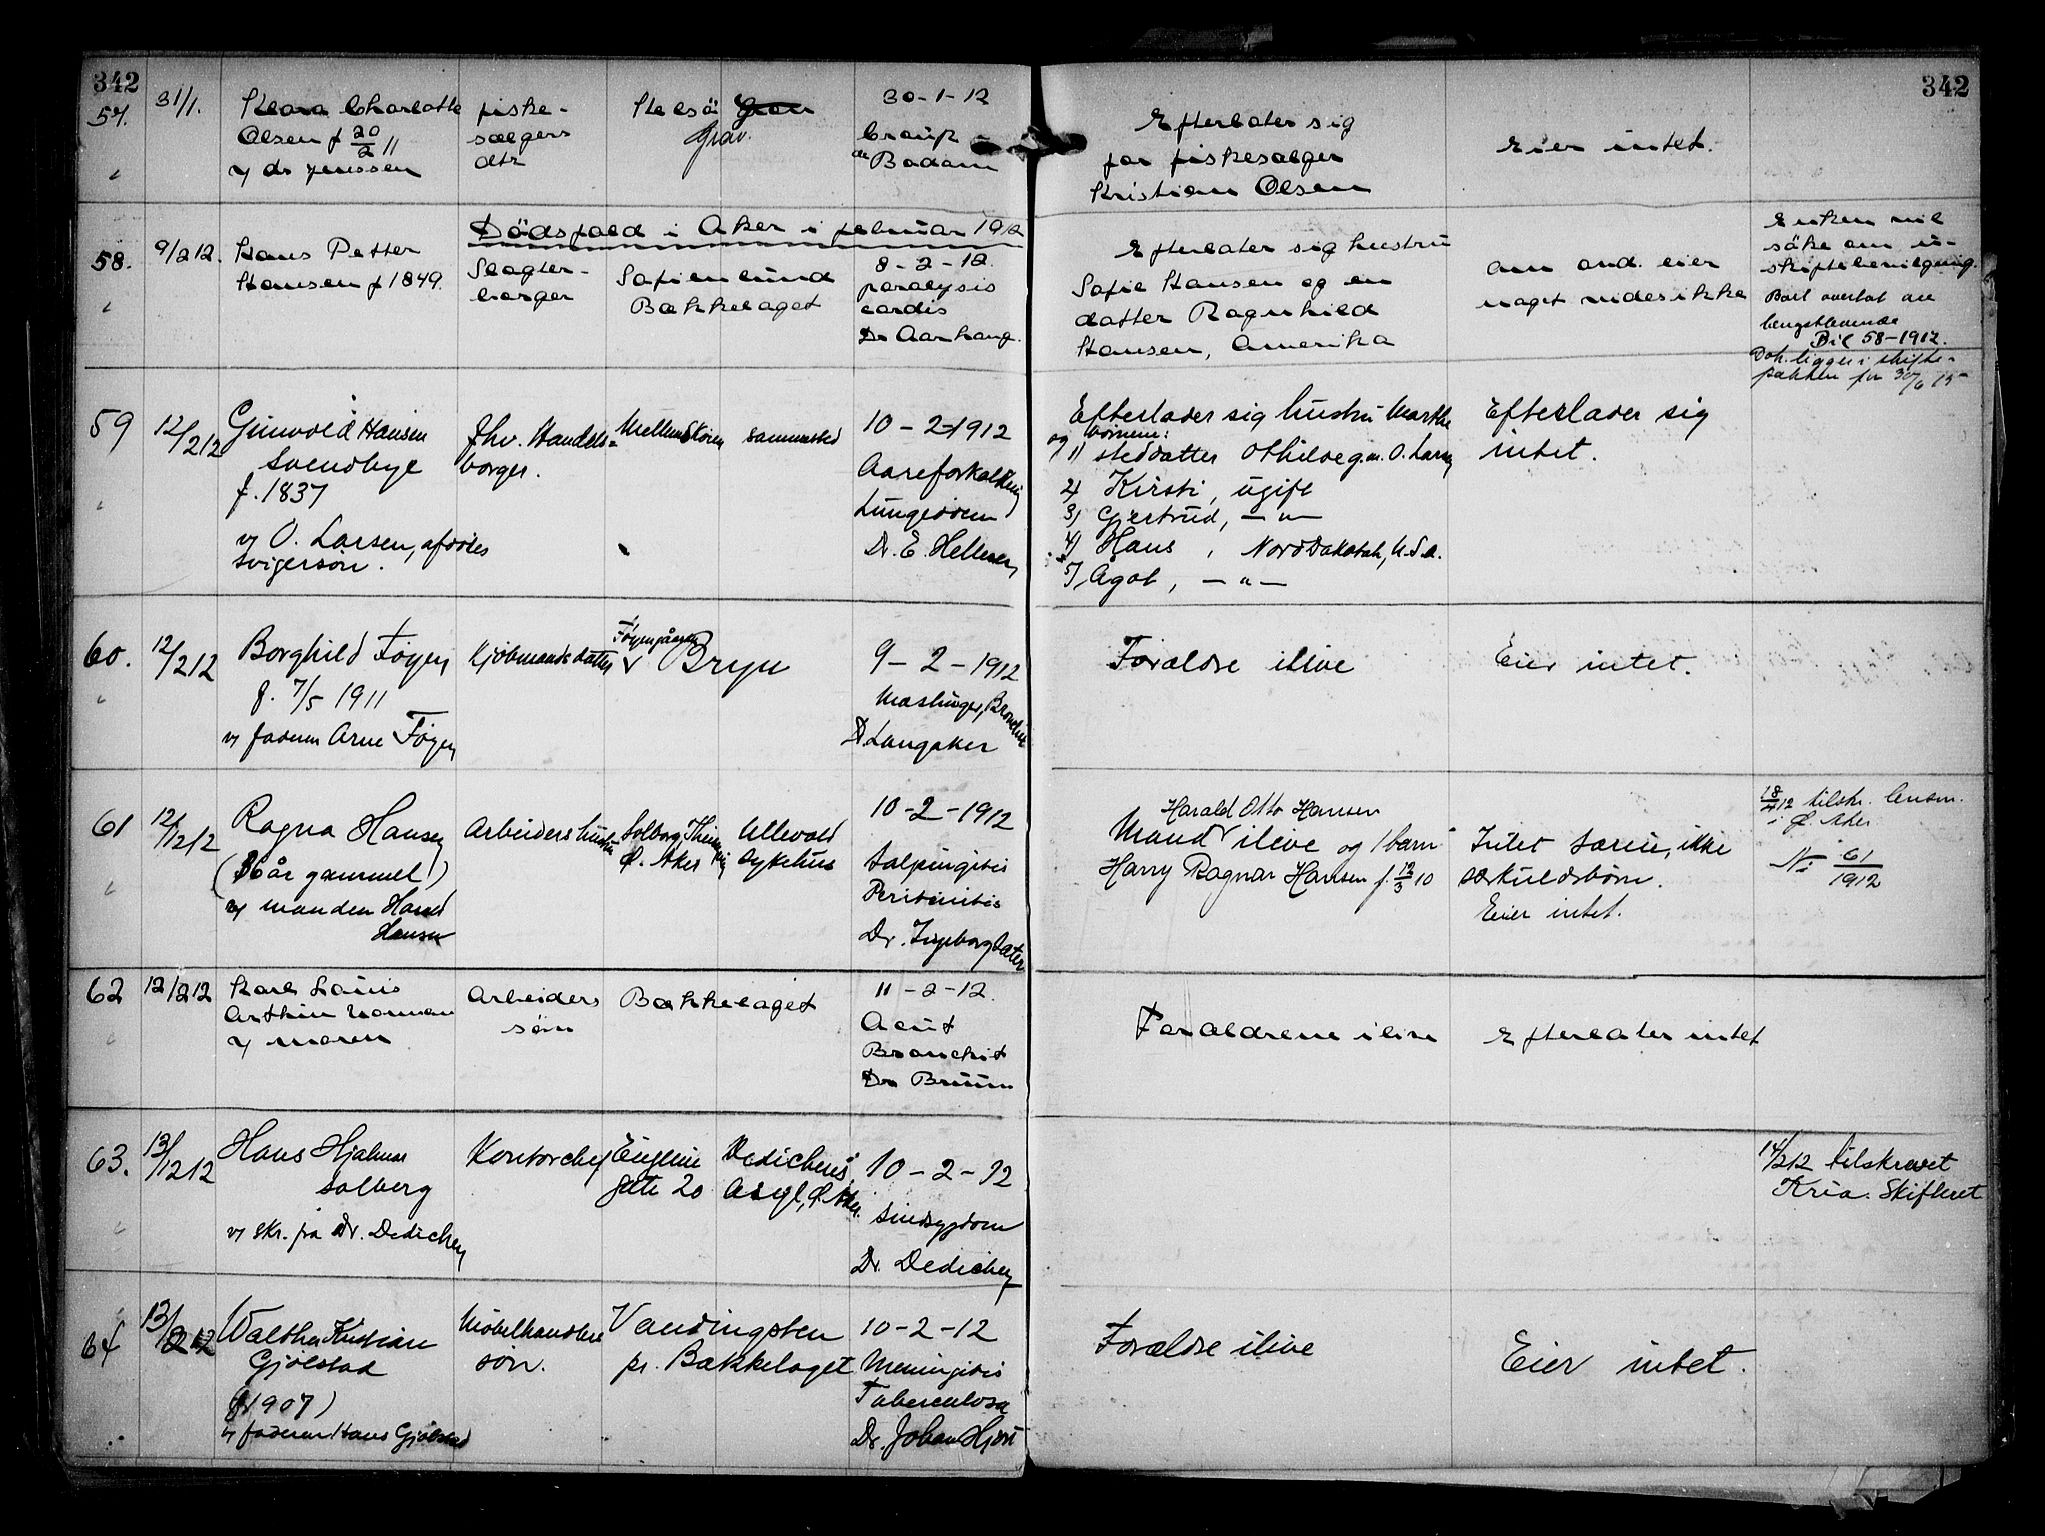 342
342
57.
31/1.
Klara Charlotte
Olsen f 20/2 11
v/ dr Jenssen
fiske-
sælgers
dtr
Helsö
Grav.
30-1-12
Croup
dr Badani
Efterlater sig
far fiskesælger
Kristian Olsen
Eier intet.
Dödsfald i Aker i februar 1912
58.
9/2 12.
Hans Petter
Hansen f 1849.
Slagter-
borger
Sofienlund
Bækkelaget
8-2-12.
paralysis
cordis
Dr Aarhaug.
Efterlater sig hustru
Sofie Hansen og en
datter Ragnhild
Hansen, Amerika
om and. eier
noget vides ikke
Enken vil
söke om u-
skiftebevilgning.
Bort overlat
længstlevende
Bil 58-1912.
Dok. ligger i skifte-
pakken for 30/6 15
59
12/2 12
Gunvold Hansen
Svendbye
f. 1837
v/ O. Larsen, afdödes
Svigersön.
fhv. Handels-
borger.
Mellem Sköien
sammested
10-2-1912
Aareforkalkning
Lungeödem
Dr. E. Hellesen
Efterlader sig hustru Marthe
og börnene:
1) steddatter Othilde g.m. O. Larsen
2) Kirsti, ugift
3) Gjertrud, —"—
4) Hans, Nord Dakotah, U.S.A.
5) Agot, —"—
Efterlader sig
intet.
60.
12/2 12
Borghild Föyen
f. 7/5 1911
v/ faderen Arne Föyen
Kjöbmandsdatter
Föyengården
v Bryn
9-2-1912
Mæslinger, Bronchit
Dr Langaker
Forældre ilive
Eier intet.
61
12/2 12
Ragna Hansen
(36 år gammel)
v/ manden Harald
Hansen
Arbeiders hustru
Solborg
Ø. Aker
Ullevold
Sykehus
10-2-1912
Salpingitis
Peritinitis
Dr. Ingeborg
Harald Otto Hansen
Mand ilive og 1 barn
Harry Ragnar Hansen f. 12/3 10
Intet særeie, ikke
særkuldsbörn.
Eier intet.
18/4 12 tilskr. lensm.
i Ø. Aker
No 61/1912
62
12/2 12
Karl Louis
Arthur Norman
v/ moren
Arbeiders
sön
Bækkelaget
11-2-12.
Acut
Bronchit
Dr Bruun
Forældrene ilive
Efterlater intet
63.
13/2 12
Hans Hjalmar
Solberg
v/ skr. fra Dr. Dedichen
Kontorchef
Eugenie
gate 20
Dedichens
Asyl, Ø. Aker.
10-2-12
Sindsygdom
Dr. Dedichen
14/2 12 tilskrevet
Kria. Skifteret
64
13/2 12
Walther Kristian
Gjölstad
(f. 1907)
v/ faderen Hans Gjölstad
Möbelhandlers
sön.
Vandingsten
pr. Bækkelaget
10-2-12
Meningitis
Tuberculosa
Dr. Johan Hjort
Forældre ilive
Eier intet.